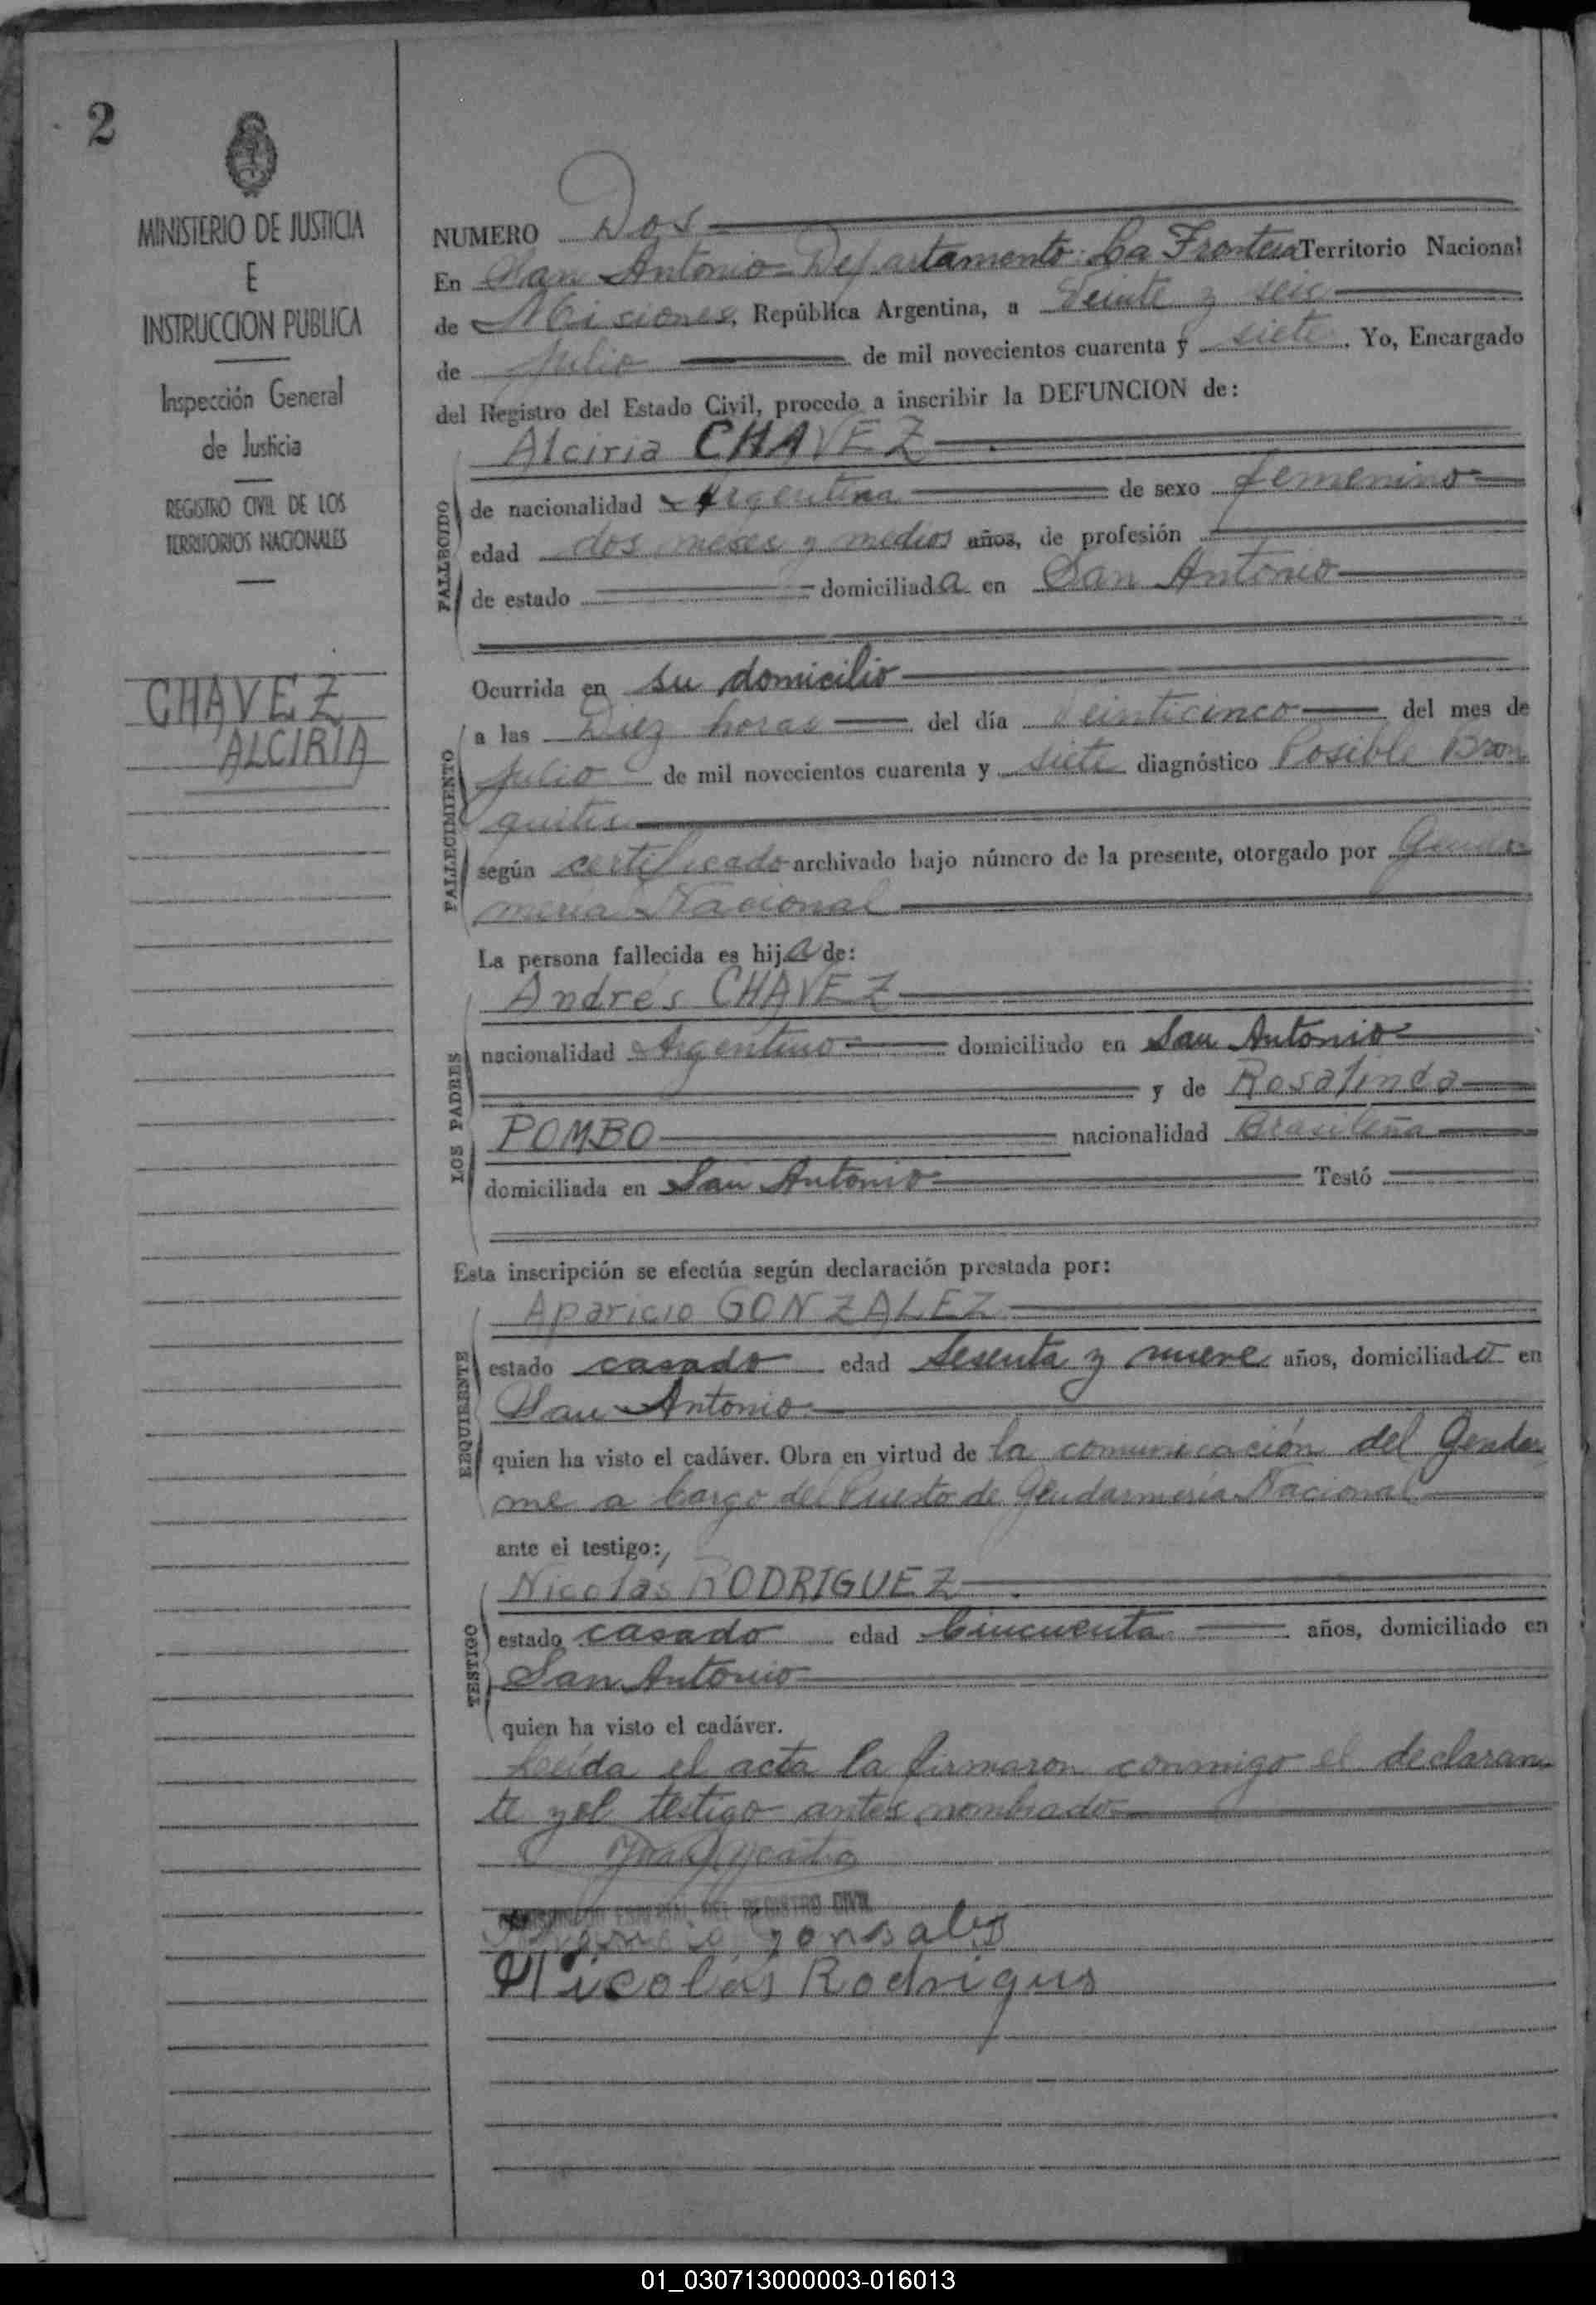 2
MINISTERIO DE JUSTICIA
E
INSTRUCCION PUBLICA
Inspección General
de Justicia
REGISTRO CIVIL DE LOS
TERRITORIOS NACIONALES
CHAVEZ
ALCIRIA
NUMERO Dos
En San Antonio - Departamento: La Frontera Territorio Nacional
de Misiones, República Argentina, a Veinte y seis
de Julio de mil novecientos cuarenta y siete. Yo, Encargado
del Registro del Estado Civil, procedo a inscribir la DEFUNCION de:
Alciria CHAVEZ
FALLECIDO
de nacionalidad Argentina de sexo femenino
edad dos meses y medios años, de profesión
de estado domiciliada en San Antonio
Ocurrida en su domicilio
FALLECIMIENTO
a las Diez horas del día Veinticinco del mes de
Julio de mil novecientos cuarenta y siete diagnóstico Posible Bron
quitis
según certificado archivado bajo número de la presente, otorgado por Gendar
meria Nacional
La persona fallecida es hija de:
Andrés CHAVEZ
LOS PADRES
nacionalidad Argentino domiciliado en San Antonio
y de Rosalinda
POMBO nacionalidad Brasileña
domiciliada en San Antonio Testó
Esta inscripción se efectúa según declaración prestada por:
Aparicio GONZALEZ
REQUIRENTE
estado casado edad Sesenta y nueve años, domiciliado en
San Antonio
quien ha visto el cadáver. Obra en virtud de la comunicación del Gendar
me a Cargo del Puesto de Gendarmería Nacional
ante el testigo:
Nicolás RODRIGUEZ
TESTIGO
estado casado edad Cincuenta años, domiciliado en
San Antonio
quien ha visto el cadáver.
Leída el acta la firmaron conmigo el declaran
te y el testigo antes nombrado
DEL REGISTRO CIVIL
Aparicio gonsales
Nicolás Rodrigus
01_030713000003-016013